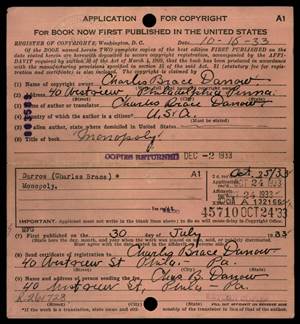 APPLICATION FOR COPYRIGHT A1
FOR BOOK NOW FIRST PUBLISHED IN THE UNITED STATES
REGISTER OF COPYRIGHTS, Washington, D. C. Date 10-16-33
Of the BOOK named herein TWO complete copies of the best edition FIRST PUBLISHED on the
date stated herein are herewith deposited to secure copyright registration, accompanied by the AFFI-
DAVIT required by section 16 of the Act of March 4, 1909, that the book has been produced in
accordance with the manufacturing provisions specified in section 15 of the said Act. $2 (statutory fee for regis-
tration and certificate) is also inclosed. The copyright is claimed by
Name of copyright owner Charles Brace Darrow
40 Westview Philadelphia Penna.
Name of author or translator Charles Brace Darrow
Country of which the author is a citizen U.S.A.
alien author, state where domiciled in United States
Title of book "Monopoly"
COPIES RETURNED DEC -2 1933
Darrow (Charles Brace) * A1 Oct. 25/33
Monopoly. OCT 24 1933
45710 OCT 24 '33
MFG
First published on the 30 July 1933
(State here the day, month, and year when the work was placed on sale, sold, or publicly distributed)
Send certificate of registration to Charles Brace Darrow
40 Westview St Phila - Pa.
Name and address of person sending the fee Chas B. Darrow
40 Westview St, Phila - Pa.